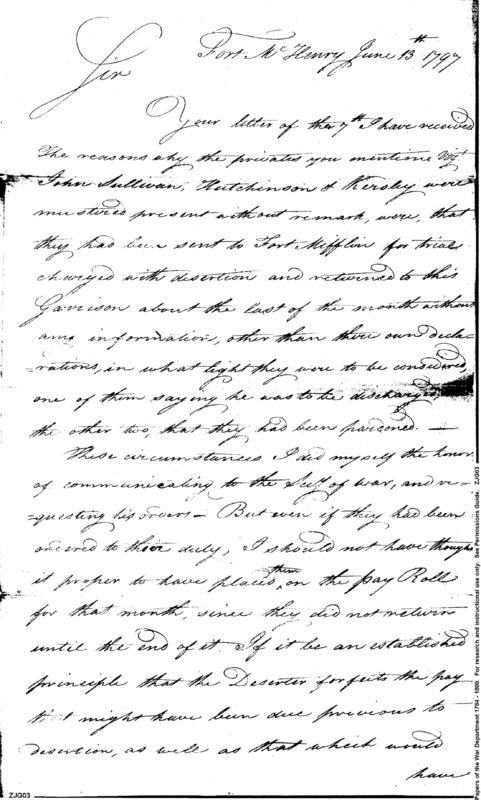 Fort McHenry June 13th 1797
Sir
Your letter of the 7th I have received
The reasons why the privates you mention Vizt
John Sullivan, Hutchinson & Kersley were
mustered present without remark, were, that
they had been sent to Fort Mifflin for trial
charged with desertion and returned to this
Garrison about the last of the month without
any information, other than there own decla-
rations, in what light they were to be considered,
one of them saying he was to be discharged,
the other two, that they had been pardoned. —
These circumstances I did myself the honor
of communicating to the Secy of War, and re-
-questing his orders — But even if they had been
ordered to their duty, I should not have thought
it proper to have placed them on the pay Roll
for that month, since they did not return
until the end of it. If it be an established
principle that the Deserter forfeits the pay
that might have been due previous to
desertion, as well as that which would
have
ZJG03
Papers of the War Department 1784 - 1800. For research and instructional use only. See Permissions Guide. ZJG03